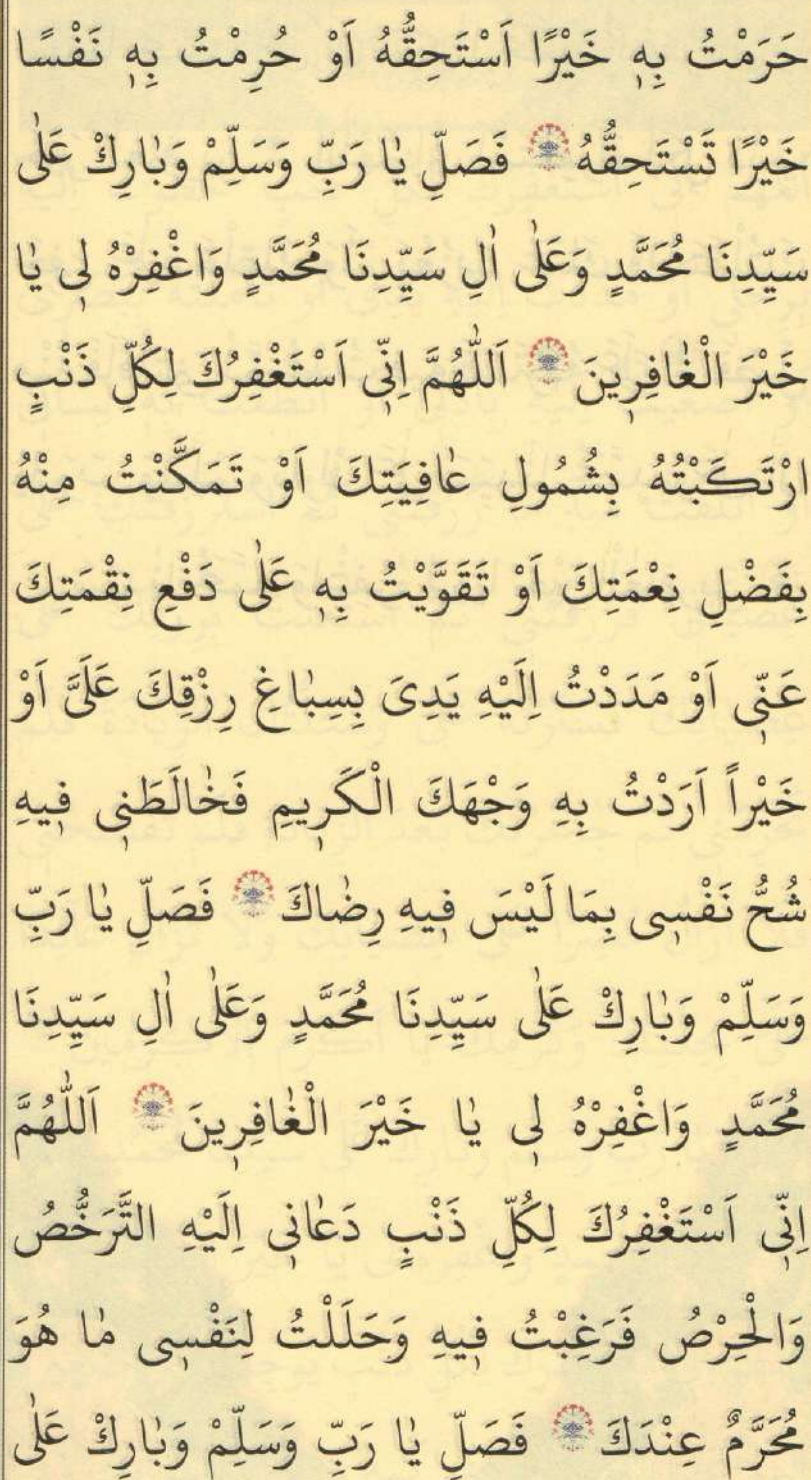 حَرَمْتُ بِهٖ خَيْرًا اَسْتَحِقُّهُ اَوْ حُرِمْتُ بِهٖ نَفْسًا
خَيْرًا تَسْتَحِقُّهُ ۞ فَصَلِّ يٰا رَبِّ وَسَلِّمْ وَبٰارِكْ عَلٰى
سَيِّدِنَا مُحَمَّدٍ وَعَلٰى اٰلِ سَيِّدِنَا مُحَمَّدٍ وَاغْفِرْهُ لٖى يٰا
خَيْرَ الْغٰافِرٖينَ ۞ اَللّٰهُمَّ اِنّٖى اَسْتَغْفِرُكَ لِكُلِّ ذَنْبٍ
ارْتَكَبْتُهُ بِشُمُولِ عٰافِيَتِكَ اَوْ تَمَكَّنْتُ مِنْهُ
بِفَضْلِ نِعْمَتِكَ اَوْ تَقَوَّيْتُ بِهٖ عَلٰى دَفْعِ نِقْمَتِكَ
عَنّٖى اَوْ مَدَدْتُ اِلَيْهِ يَدِىَ بِسِبٰاغِ رِزْقِكَ عَلَىَّ اَوْ
خَيْراً اَرَدْتُ بِهِ وَجْهَكَ الْكَرٖيمِ فَخٰالَطَنٖى فٖيهِ
شُحُّ نَفْسٖى بِمَا لَيْسَ فٖيهِ رِضٰاكَ ۞ فَصَلِّ يٰا رَبِّ
وَسَلِّمْ وَبٰارِكْ عَلٰى سَيِّدِنَا مُحَمَّدٍ وَعَلٰى اٰلِ سَيِّدِنَا
مُحَمَّدٍ وَاغْفِرْهُ لٖى يٰا خَيْرَ الْغٰافِرٖينَ ۞ اَللّٰهُمَّ
اِنّٖى اَسْتَغْفِرُكَ لِكُلِّ ذَنْبٍ دَعٰانٖى اِلَيْهِ التَّرَخُّصُ
وَالْحِرْصُ فَرَغِبْتُ فٖيهِ وَحَلَلْتُ لِنَفْسٖى مٰا هُوَ
مُحَرَّمٌ عِنْدَكَ ۞ فَصَلِّ يٰا رَبِّ وَسَلِّمْ وَبٰارِكْ عَلٰى